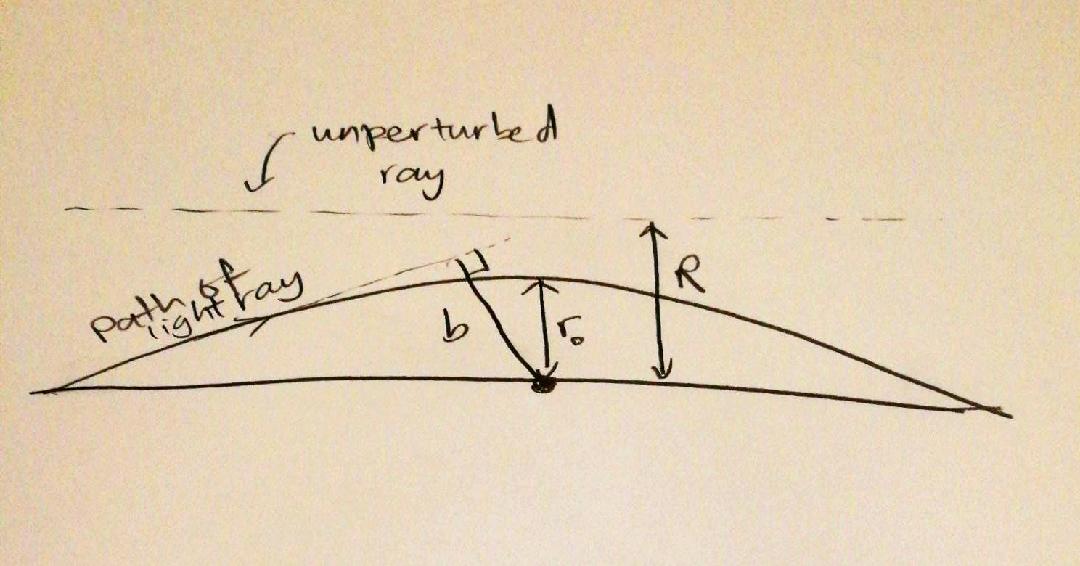 unperturbed
ray
path of
light ray
R
b
r₀